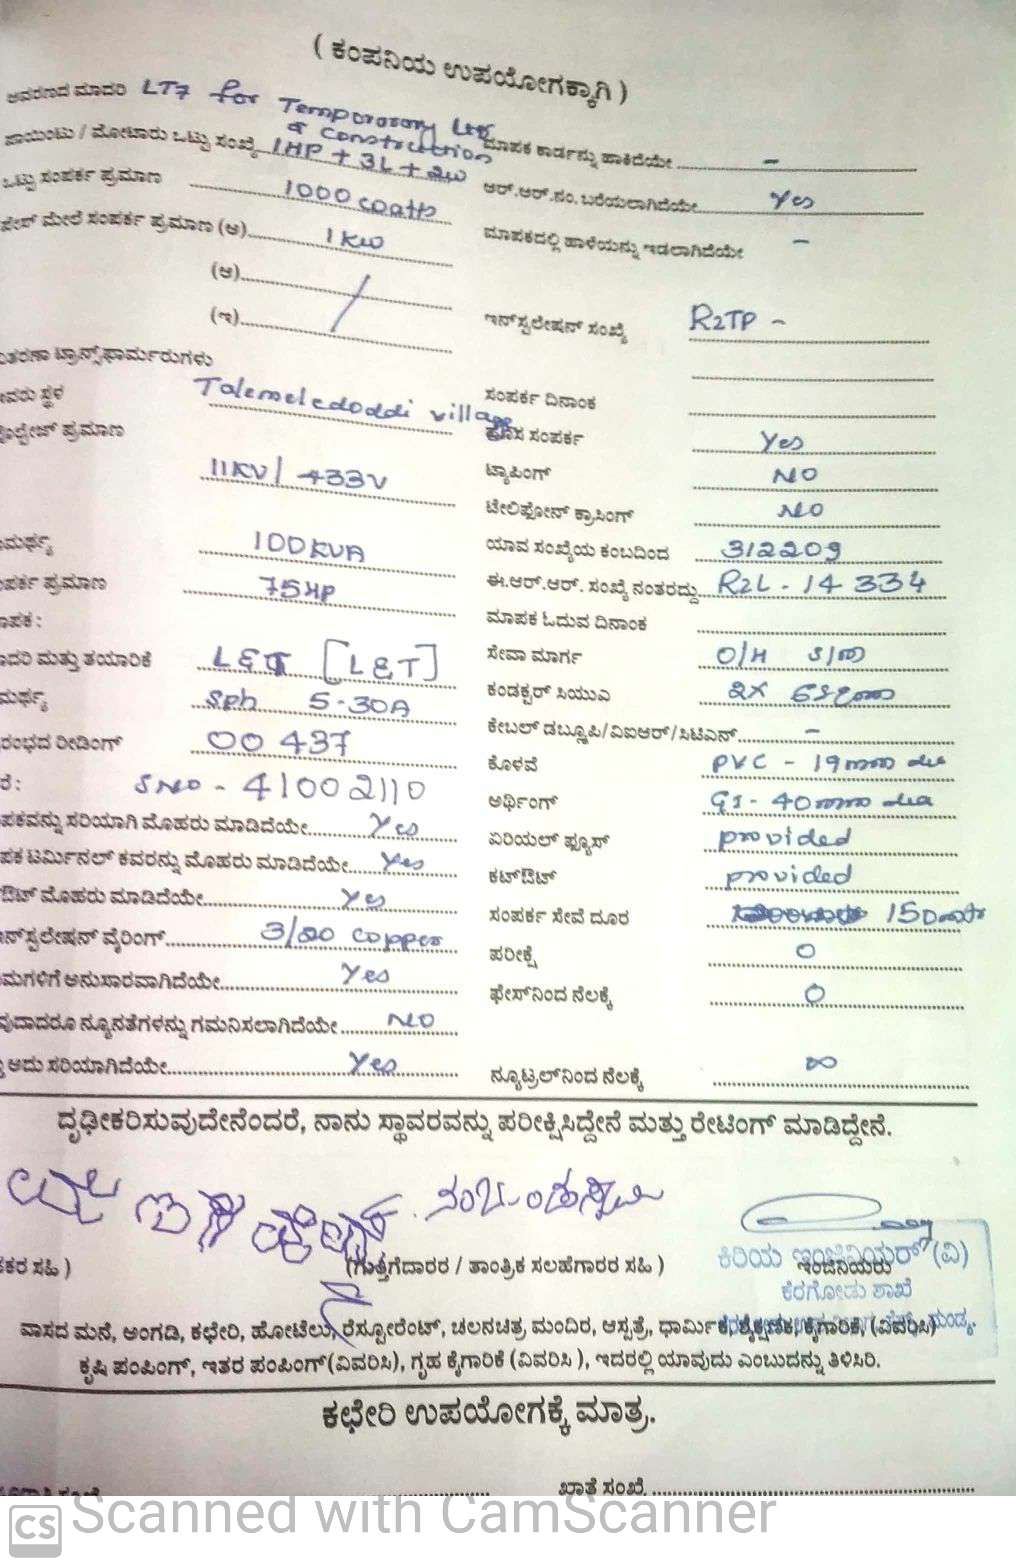 ( ಕಂಪನಿಯ ಉಪಯೋಗಕ್ಕಾಗಿ )
ಆವರಣದ ಮಾದರಿ LT7 for Temporary Ltg
& Construction
ಪಾಯಿಂಟು / ಮೋಟಾರು ಒಟ್ಟು ಸಂಖ್ಯೆ 1HP + 3L + 2w
ಮಾಪಕ ಕಾರ್ಡನ್ನು ಹಾಕಿದೆಯೇ -
ಒಟ್ಟು ಸಂಪರ್ಕ ಪ್ರಮಾಣ 1000 watts
ಆರ್.ಆರ್.ನಂ. ಬರೆಯಲಾಗಿದೆಯೇ Yes
ಫೇಸ್ ಮೇಲೆ ಸಂಪರ್ಕ ಪ್ರಮಾಣ (ಅ) 1 KW
ಮಾಪಕದಲ್ಲಿ ಹಾಳೆಯನ್ನು ಇಡಲಾಗಿದೆಯೇ -
(ಆ)
(ಇ)
ಇನ್‌ಸ್ಟಲೇಷನ್ ಸಂಖ್ಯೆ R2TP -
ತರಣಾ ಟ್ರಾನ್ಸ್‌ಫಾರ್ಮರುಗಳು
ಸ್ಥಳ Talemeledoddi village
ಸಂಪರ್ಕ ದಿನಾಂಕ
ಪ್ರಮಾಣ
ಹೊಸ ಸಂಪರ್ಕ Yes
11KV / 433V
ಟ್ಯಾಪಿಂಗ್ NO
ಟೆಲಿಫೋನ್ ಕ್ರಾಸಿಂಗ್ NO
ಮರ್ಥ್ಯ 100KVA
ಯಾವ ಸಂಖ್ಯೆಯ ಕಂಬದಿಂದ 312209
ಪರ್ಕ ಪ್ರಮಾಣ 75HP
ಈ.ಆರ್.ಆರ್. ಸಂಖ್ಯೆ ನಂತರದ್ದು R2L - 14 334
ಾಪಕ :
ಮಾಪಕ ಓದುವ ದಿನಾಂಕ
ಾದರಿ ಮತ್ತು ತಯಾರಿಕೆ L&T [L&T]
ಸೇವಾ ಮಾರ್ಗ O/H S/m
ಮರ್ಥ್ಯ Sph 5-30A
ಕಂಡಕ್ಟರ್ ಸಿಯುಎ 2X
ರಂಭದ ರೀಡಿಂಗ್ 00 437
ಕೇಬಲ್ ಡಬ್ಲ್ಯೂಪಿ/ವಿಐಆರ್/ಸಿಟಿಎಸ್ -
ರೆ : SNO - 41002110
ಕೊಳವೆ PVC - 19mm dia
ಪಕವನ್ನು ಸರಿಯಾಗಿ ಮೊಹರು ಮಾಡಿದೆಯೇ Yes
ಅರ್ಥಿಂಗ್ GI - 40mm dia
ಪಕ ಟರ್ಮಿನಲ್ ಕವರನ್ನು ಮೊಹರು ಮಾಡಿದೆಯೇ Yes
ಏರಿಯಲ್ ಫ್ಯೂಸ್ provided
ಔಟ್ ಮೊಹರು ಮಾಡಿದೆಯೇ Yes
ಕಟ್‌ಔಟ್ provided
ನ್‌ಸ್ಟಲೇಷನ್ ವೈರಿಂಗ್ 3/20 copper
ಸಂಪರ್ಕ ಸೇವೆ ದೂರ 150
ಮಗಳಿಗೆ ಅನುಸಾರವಾಗಿದೆಯೇ Yes
ಪರೀಕ್ಷೆ 0
ವುದಾದರೂ ನ್ಯೂನತೆಗಳನ್ನು ಗಮನಿಸಲಾಗಿದೆಯೇ NO
ಫೇಸ್‌ನಿಂದ ನೆಲಕ್ಕೆ 0
ಅದು ಸರಿಯಾಗಿದೆಯೇ Yes
ನ್ಯೂಟ್ರಲ್‌ನಿಂದ ನೆಲಕ್ಕೆ ∞
ದೃಢೀಕರಿಸುವುದೇನೆಂದರೆ, ನಾನು ಸ್ಥಾವರವನ್ನು ಪರೀಕ್ಷಿಸಿದ್ದೇನೆ ಮತ್ತು ರೇಟಿಂಗ್ ಮಾಡಿದ್ದೇನೆ.
ಕರ ಸಹಿ )
(ಗುತ್ತಿಗೆದಾರರ / ತಾಂತ್ರಿಕ ಸಲಹೆಗಾರರ ಸಹಿ )
ಇಂಜಿನಿಯರು
ಕಿರಿಯ ಇಂಜಿನಿಯರ್ (ವಿ)
ಕೆರಗೋಡು ಶಾಖೆ
ವಾಸದ ಮನೆ, ಅಂಗಡಿ, ಕಛೇರಿ, ಹೋಟೆಲು, ರೆಸ್ಟೋರೆಂಟ್, ಚಲನಚಿತ್ರ ಮಂದಿರ, ಆಸ್ಪತ್ರೆ, ಧಾರ್ಮಿಕ, ಶೈಕ್ಷಣಿಕ, ಕೈಗಾರಿಕೆ, (ವಿವರಿಸಿ)
ಕೃಷಿ ಪಂಪಿಂಗ್, ಇತರ ಪಂಪಿಂಗ್ (ವಿವರಿಸಿ), ಗೃಹ ಕೈಗಾರಿಕೆ (ವಿವರಿಸಿ ), ಇದರಲ್ಲಿ ಯಾವುದು ಎಂಬುದನ್ನು ತಿಳಿಸಿರಿ.
ಕಛೇರಿ ಉಪಯೋಗಕ್ಕೆ ಮಾತ್ರ.
ಖಾತೆ ಸಂಖ್ಯೆ
CS Scanned with CamScanner